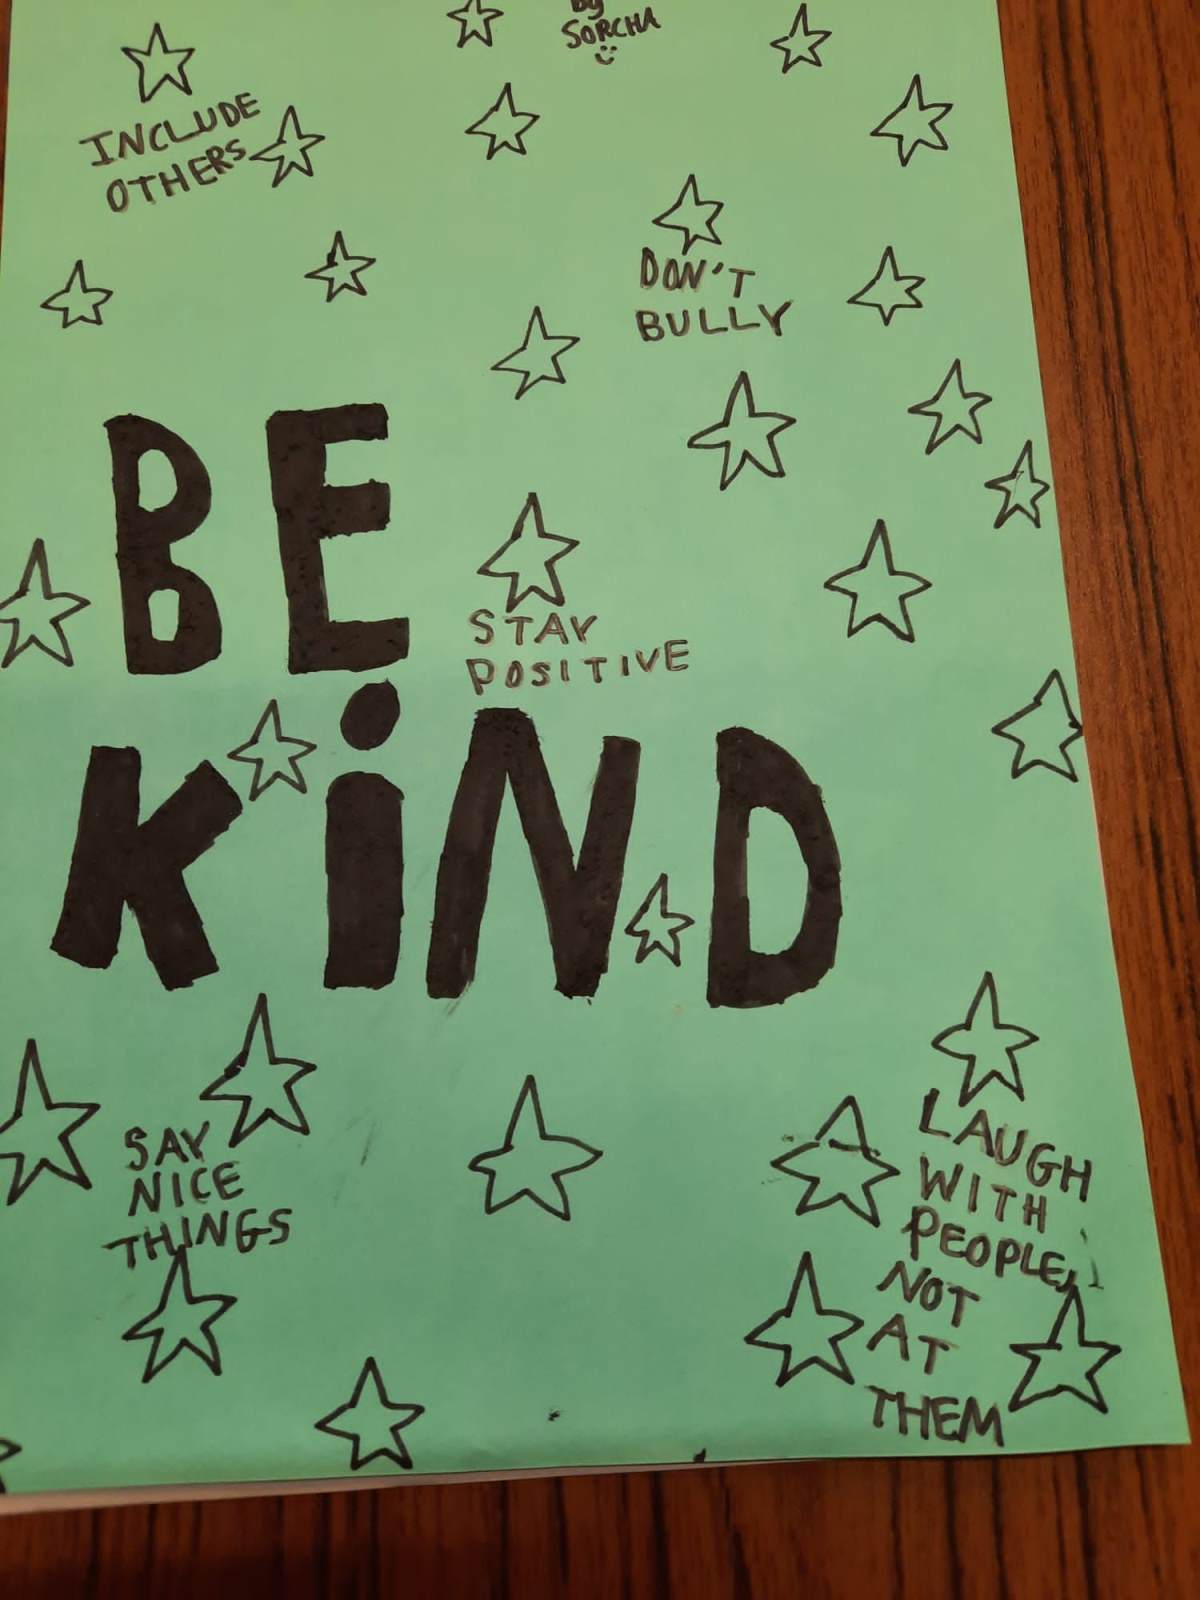 by
SORCHA
INCLUDE
OTHERS
DON'T
BULLY
BE
STAY
POSITIVE
KiND
SAY
NICE
THINGS
LAUGH
WITH
PEOPLE,
NOT
AT
THEM